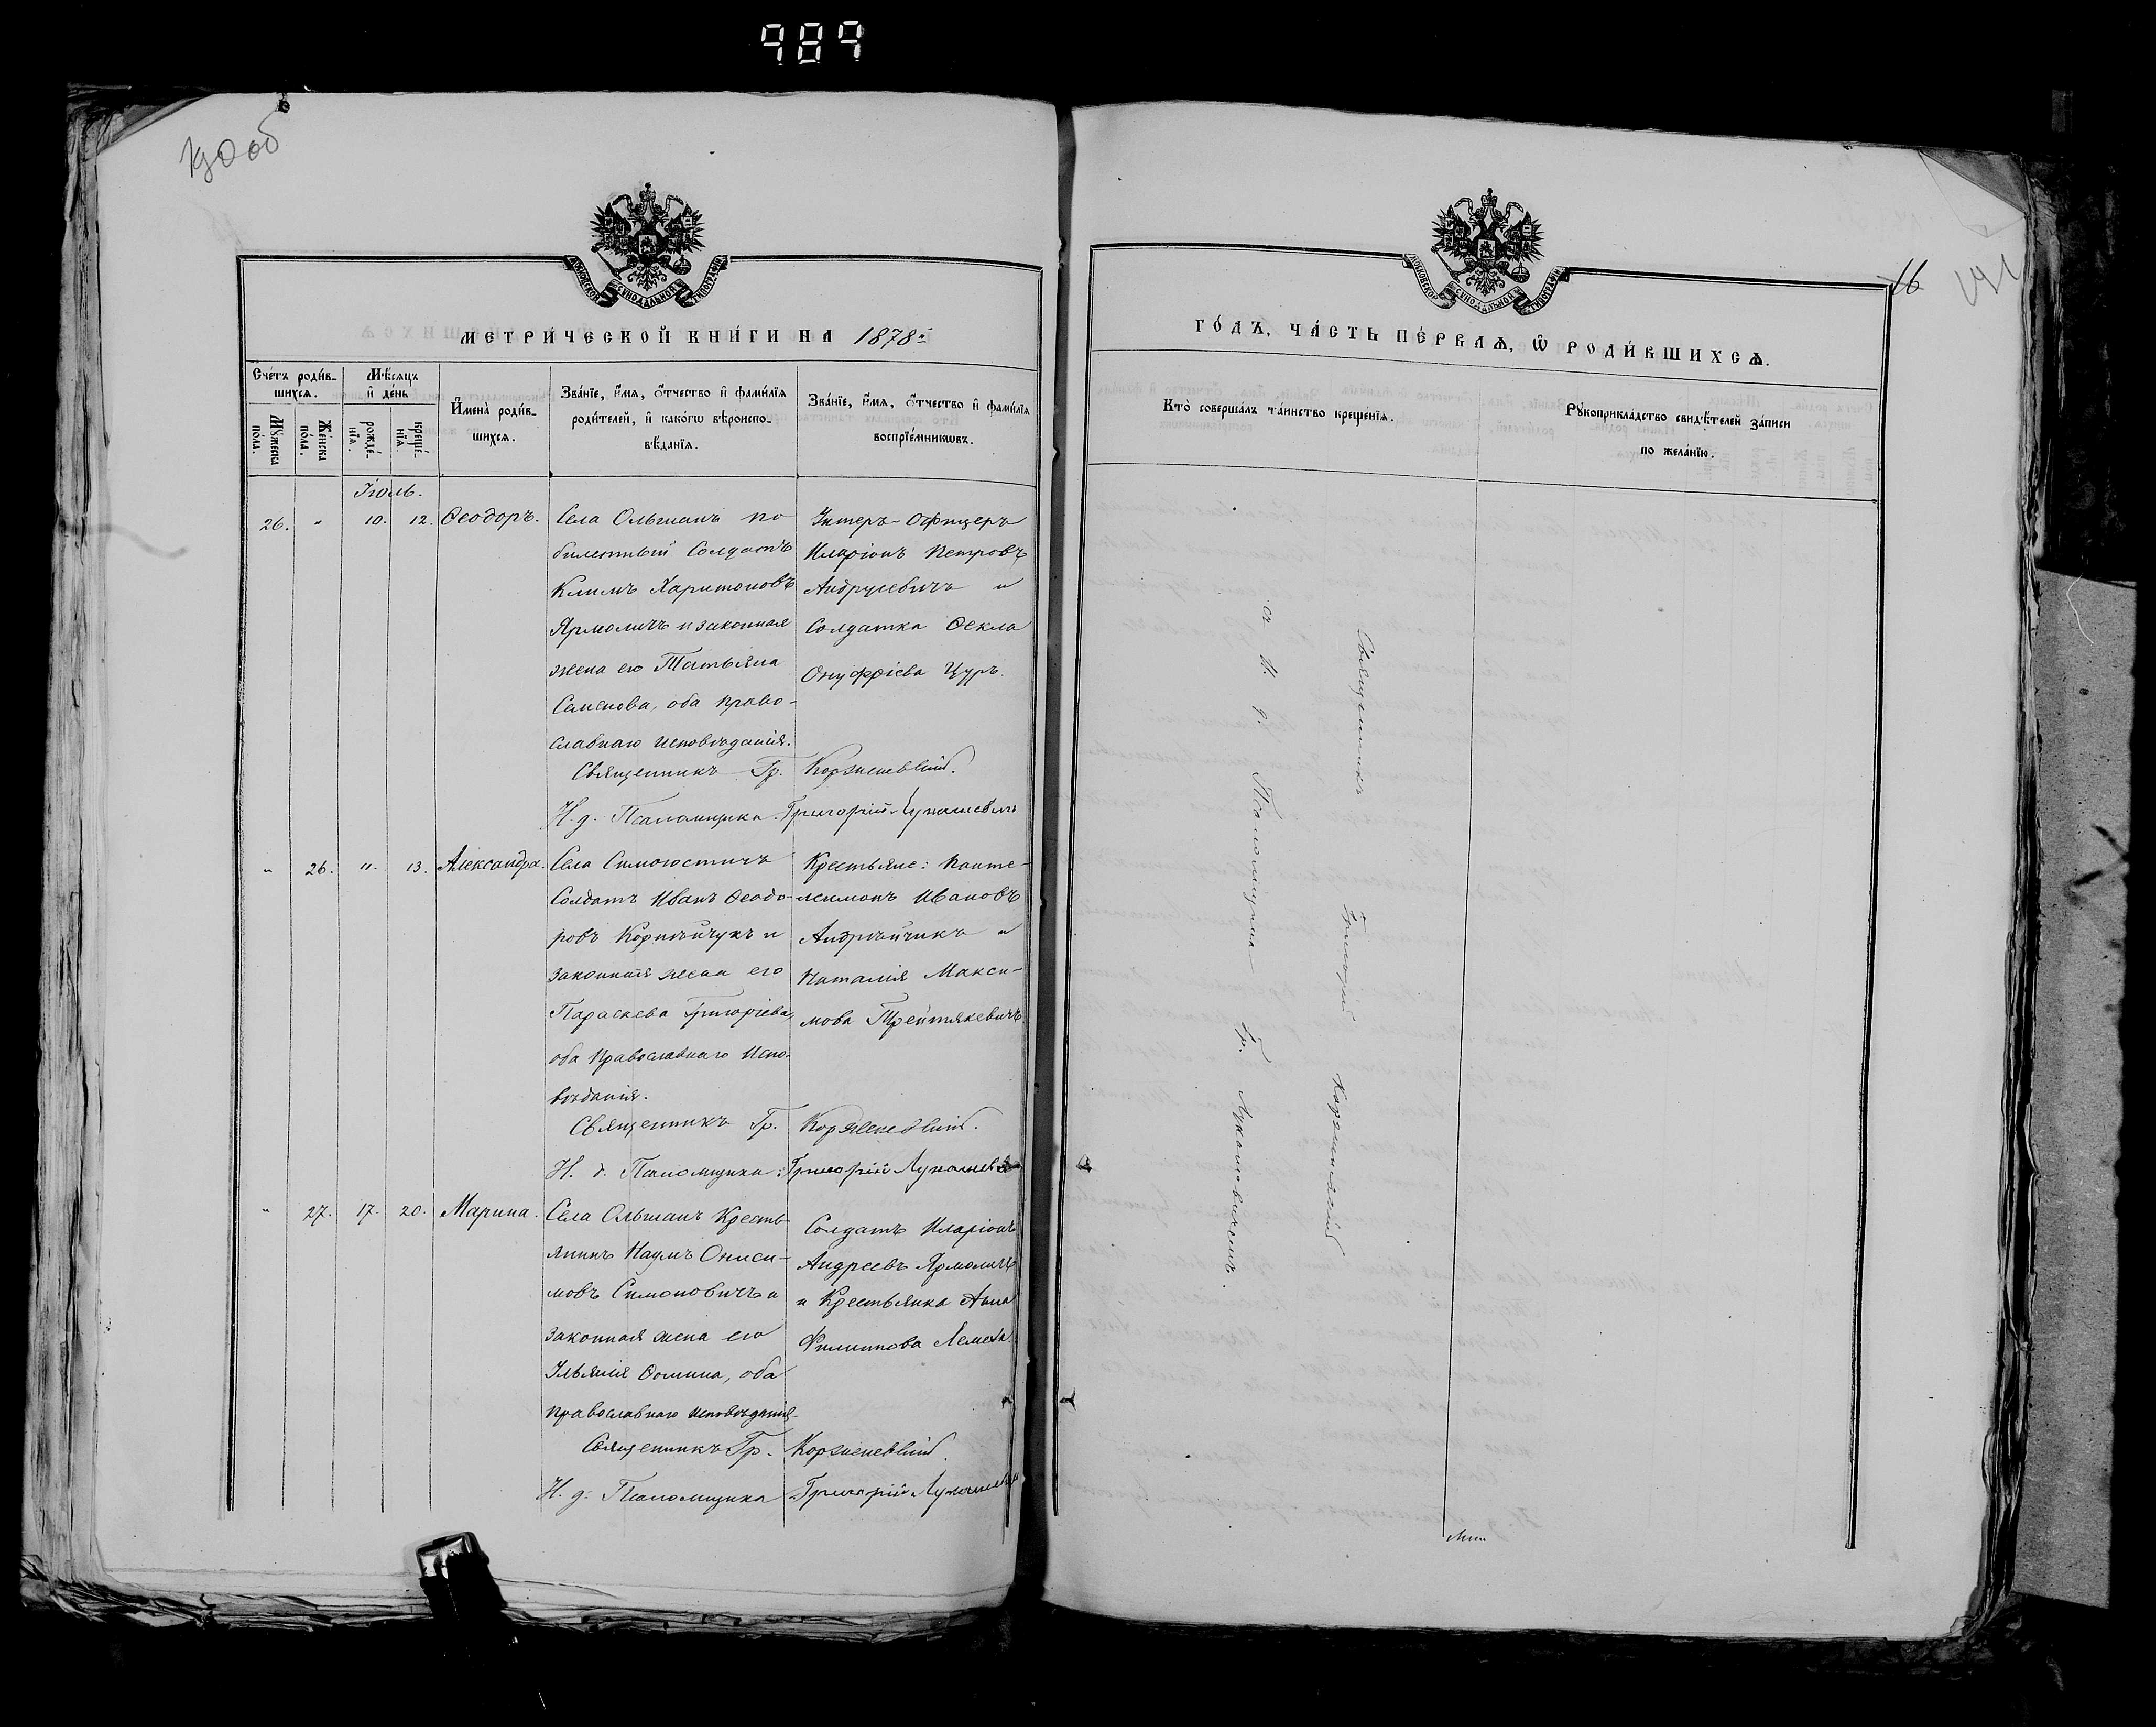 989
190 об
МОСКОВСКОЙ СѴНОДАЛЬНОЙ ТИПОГРАФІИ
МЕТРИ́ЧЕСКОЙ КНИ́ГИ НА 1878й
Сче́тъ роди́в-
шихсѧ.
Мѣ́сѧцъ
и҆ де́нь
Мꙋ́жеска по́ла.
Же́нска по́ла.
рожде́-
нїѧ.
креще́-
нїѧ.
И҆мена̀ роди́в-
шихсѧ.
Зва́нїе, и҆́мѧ, ѻ҆́тчество и҆ фами́лїѧ
роди́телей, и҆ како́гѡ вѣроиспо-
вѣ́данїѧ.
Зва́нїе, и҆́мѧ, ѻ҆́тчество и҆ фами́лїѧ
воспрїе́мникѡвъ.
Іюль.
26. „ 10. 12. Ѳеодоръ.
Села Ольшанъ по
билетный Солдатъ
Климъ Харитоновъ
Ярмоличъ и законная
жена его Татьяна
Семенова, оба право-
славнаго исповѣданія.
Унтеръ-Офицеръ
Иларіонъ Петровъ
Андрусевичъ и
Солдатка Ѳекла
Онуфріева Цуръ.
Священникъ Гр. Корженевскій.
И. д. Псаломщика Григорій Лукашевичъ
„ 26. 11. 13. Александра.
Села Симогостичъ
Солдатъ Иванъ Ѳеодо-
ровъ Корнѣйчукъ и
законная жена его
Параскева Григоріева,
оба Православнаго Испо-
вѣданія.
Крестьяне: Панте-
леимонъ Ивановъ
Андрѣйчикъ и
Наталія Макси-
мова Трейтякевичъ.
Священникъ Гр. Корженевскій.
И. д. Псаломщика: Григорій Лукашевичъ
„ 27. 17. 20. Марина.
Села Ольшанъ Кресть-
янинъ Наумъ Ониси-
мовъ Симоновичъ и
законная жена его
Ульянія Ѳомина, оба
православнаго исповѣданія.
Солдатъ Иларіонъ
Андреевъ Ярмоличъ
и Крестьянка Анна
Филиппова Лемеха.
Священникъ Гр. Корженевскій.
И. д. Псаломщика Григорій Лукашевичъ
16
191
МОСКОВСКОЙ СѴНОДАЛЬНОЙ ТИПОГРАФІИ
ГО́ДЪ, ЧА́СТЬ ПЕ́РВАѦ, Ѡ҆ РОДИ́ВШИХСѦ.
Кто̀ соверша́лъ та́инство креще́нїѧ.
Рꙋкоприкла́дство свидѣ́телей за́писи
по жела́нїю.
Священникъ Григорій Корженевскій
съ И. д. Псаломщика Гр. Лукашевичемъ.